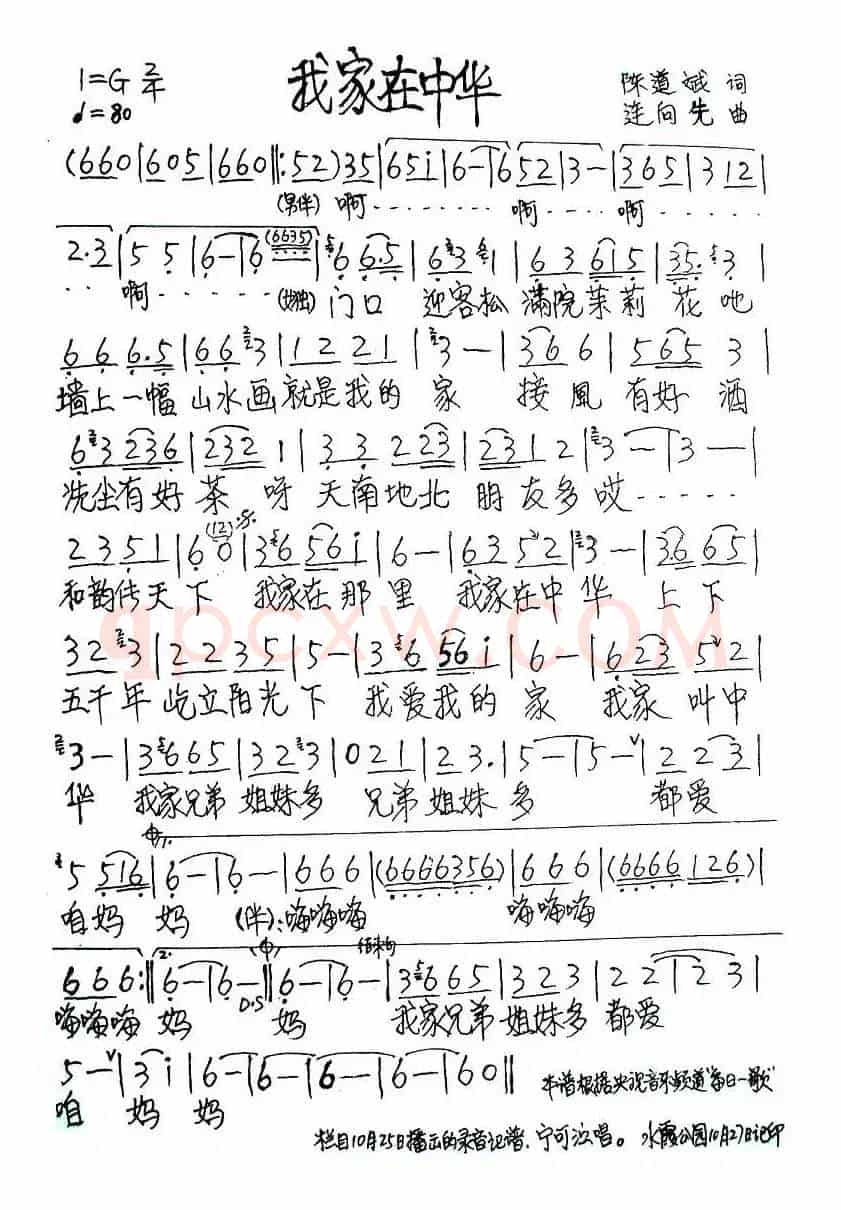 1=G 2/4 我家在中华 陈道斌 词
♩=80 连向先 曲
(660|605|660‖:52)35|65i|6-|652|3-|365|312|
(男伴) 啊........ 啊.... 啊....
2.3|55|6-|6(6635)|66.5|631|63615|35.3|
.. 啊..... 门口 迎客松 满院茉莉 花吔
666.5|663|1221|3-|366|5653|
墙上一幅 山水画 就是我的 家 接風 有好 酒
63236|2321|33223|2312|3-|3-|
洗尘有好 茶 呀 天南地北 朋友多哎.....
2351|60(12)|3656i|6-|6352|3-|3665|
和韵传天 下 我家在那 里 我家在中 华 上下
323|2235|5-|3656i|6-|62352|
五千年 屹立阳光 下 我爱我的 家 我家 叫中
3-|3665|323|021|23.|5-|5-|223|
华 我家兄弟 姐妹多 兄弟 姐妹 多 都爱
5516|6-|6-|666|(6666356)|666|(6666126)|
咱妈 妈 (伴):嗨嗨嗨 嗨嗨嗨
666:‖2.6-|6-‖6-|6-|3665|323|22|23|
D.S 结束句
嗨嗨嗨 妈 妈 我家兄弟 姐妹多 都爱
5-|3i|6-|6-|6-|6-|60‖ 本谱根据央视音乐频道"每日一歌"
咱 妈 妈
栏目10月25日播出的录音记谱.宁可泣唱。水霞公园10月27日记印
qpcxw.COM